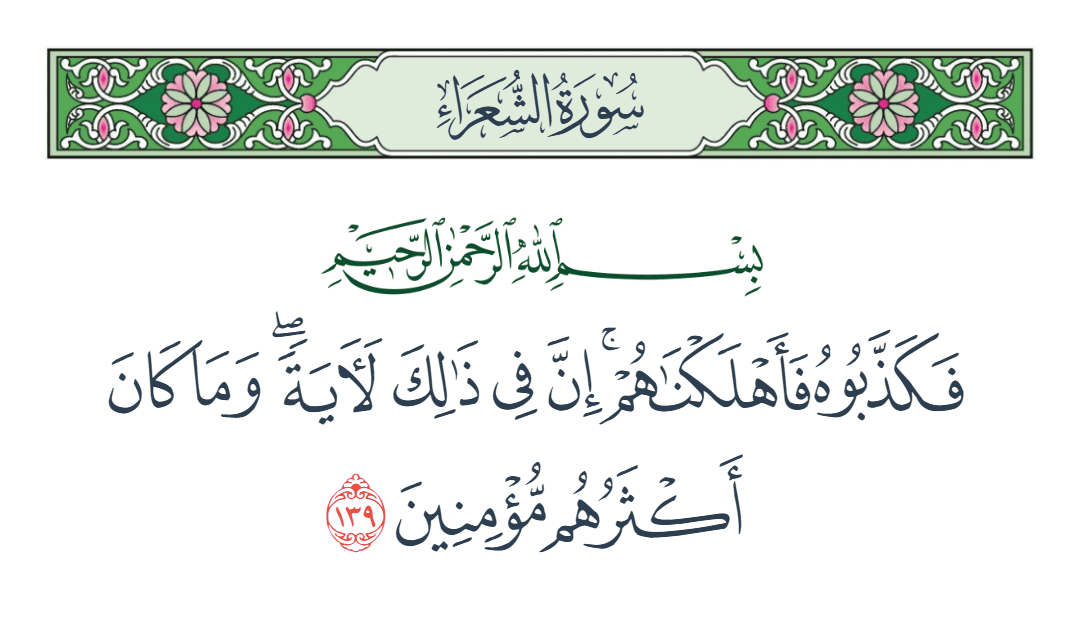 سُورَةُ الشُّعَرَاءِ
بِسْمِ ٱللَّهِ ٱلرَّحْمَٰنِ ٱلرَّحِيمِ
فَكَذَّبُوهُ فَأَهْلَكْنَٰهُمْ ۚ إِنَّ فِى ذَٰلِكَ لَأَيَةً ۖ وَمَا كَانَ
أَكْثَرُهُم مُّؤْمِنِينَ ١٣٩